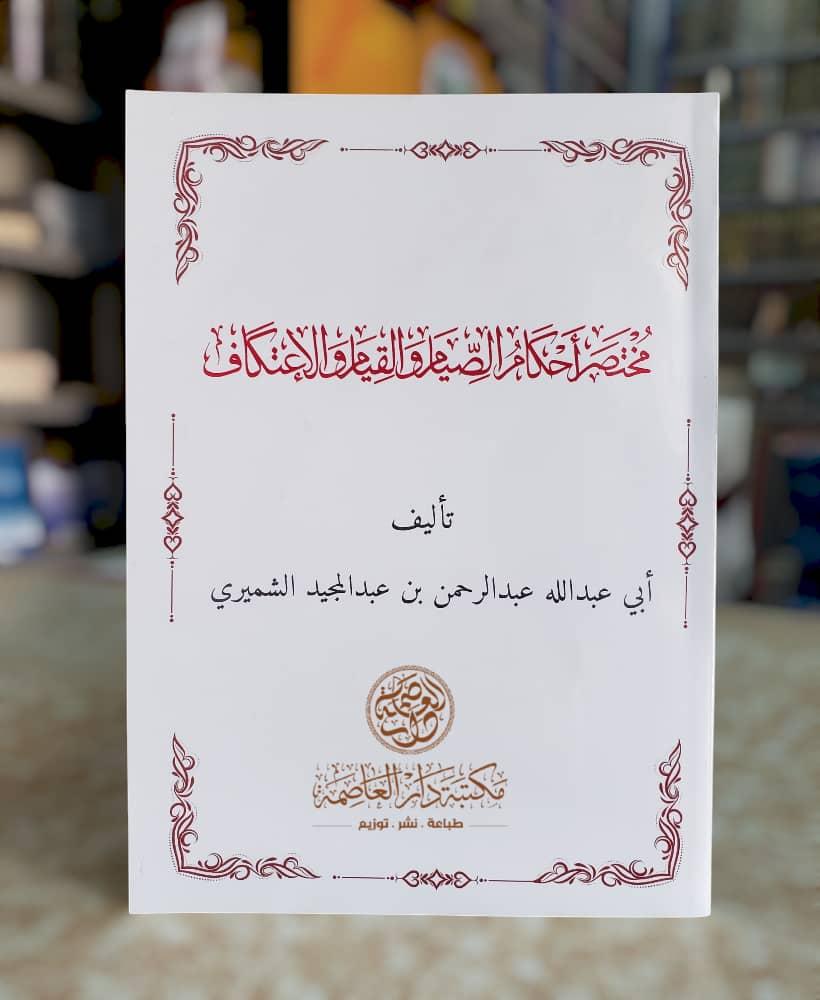 مُخْتَصَر أَحْكَامُ الصِّيَامِ وَالقِيَامِ وَالإعْتِكَاف
تأليف
أبي عبدالله عبدالرحمن بن عبدالمجيد الشميري
دار العاصمة
مكتبة دار العاصمة
طباعة . نشر . توزيع